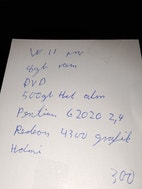 W 11 pro
4gb ram
DVD
500gb Hd
Pentium G2020 2,4
Radeon 4300 grafik
Hdmi
300